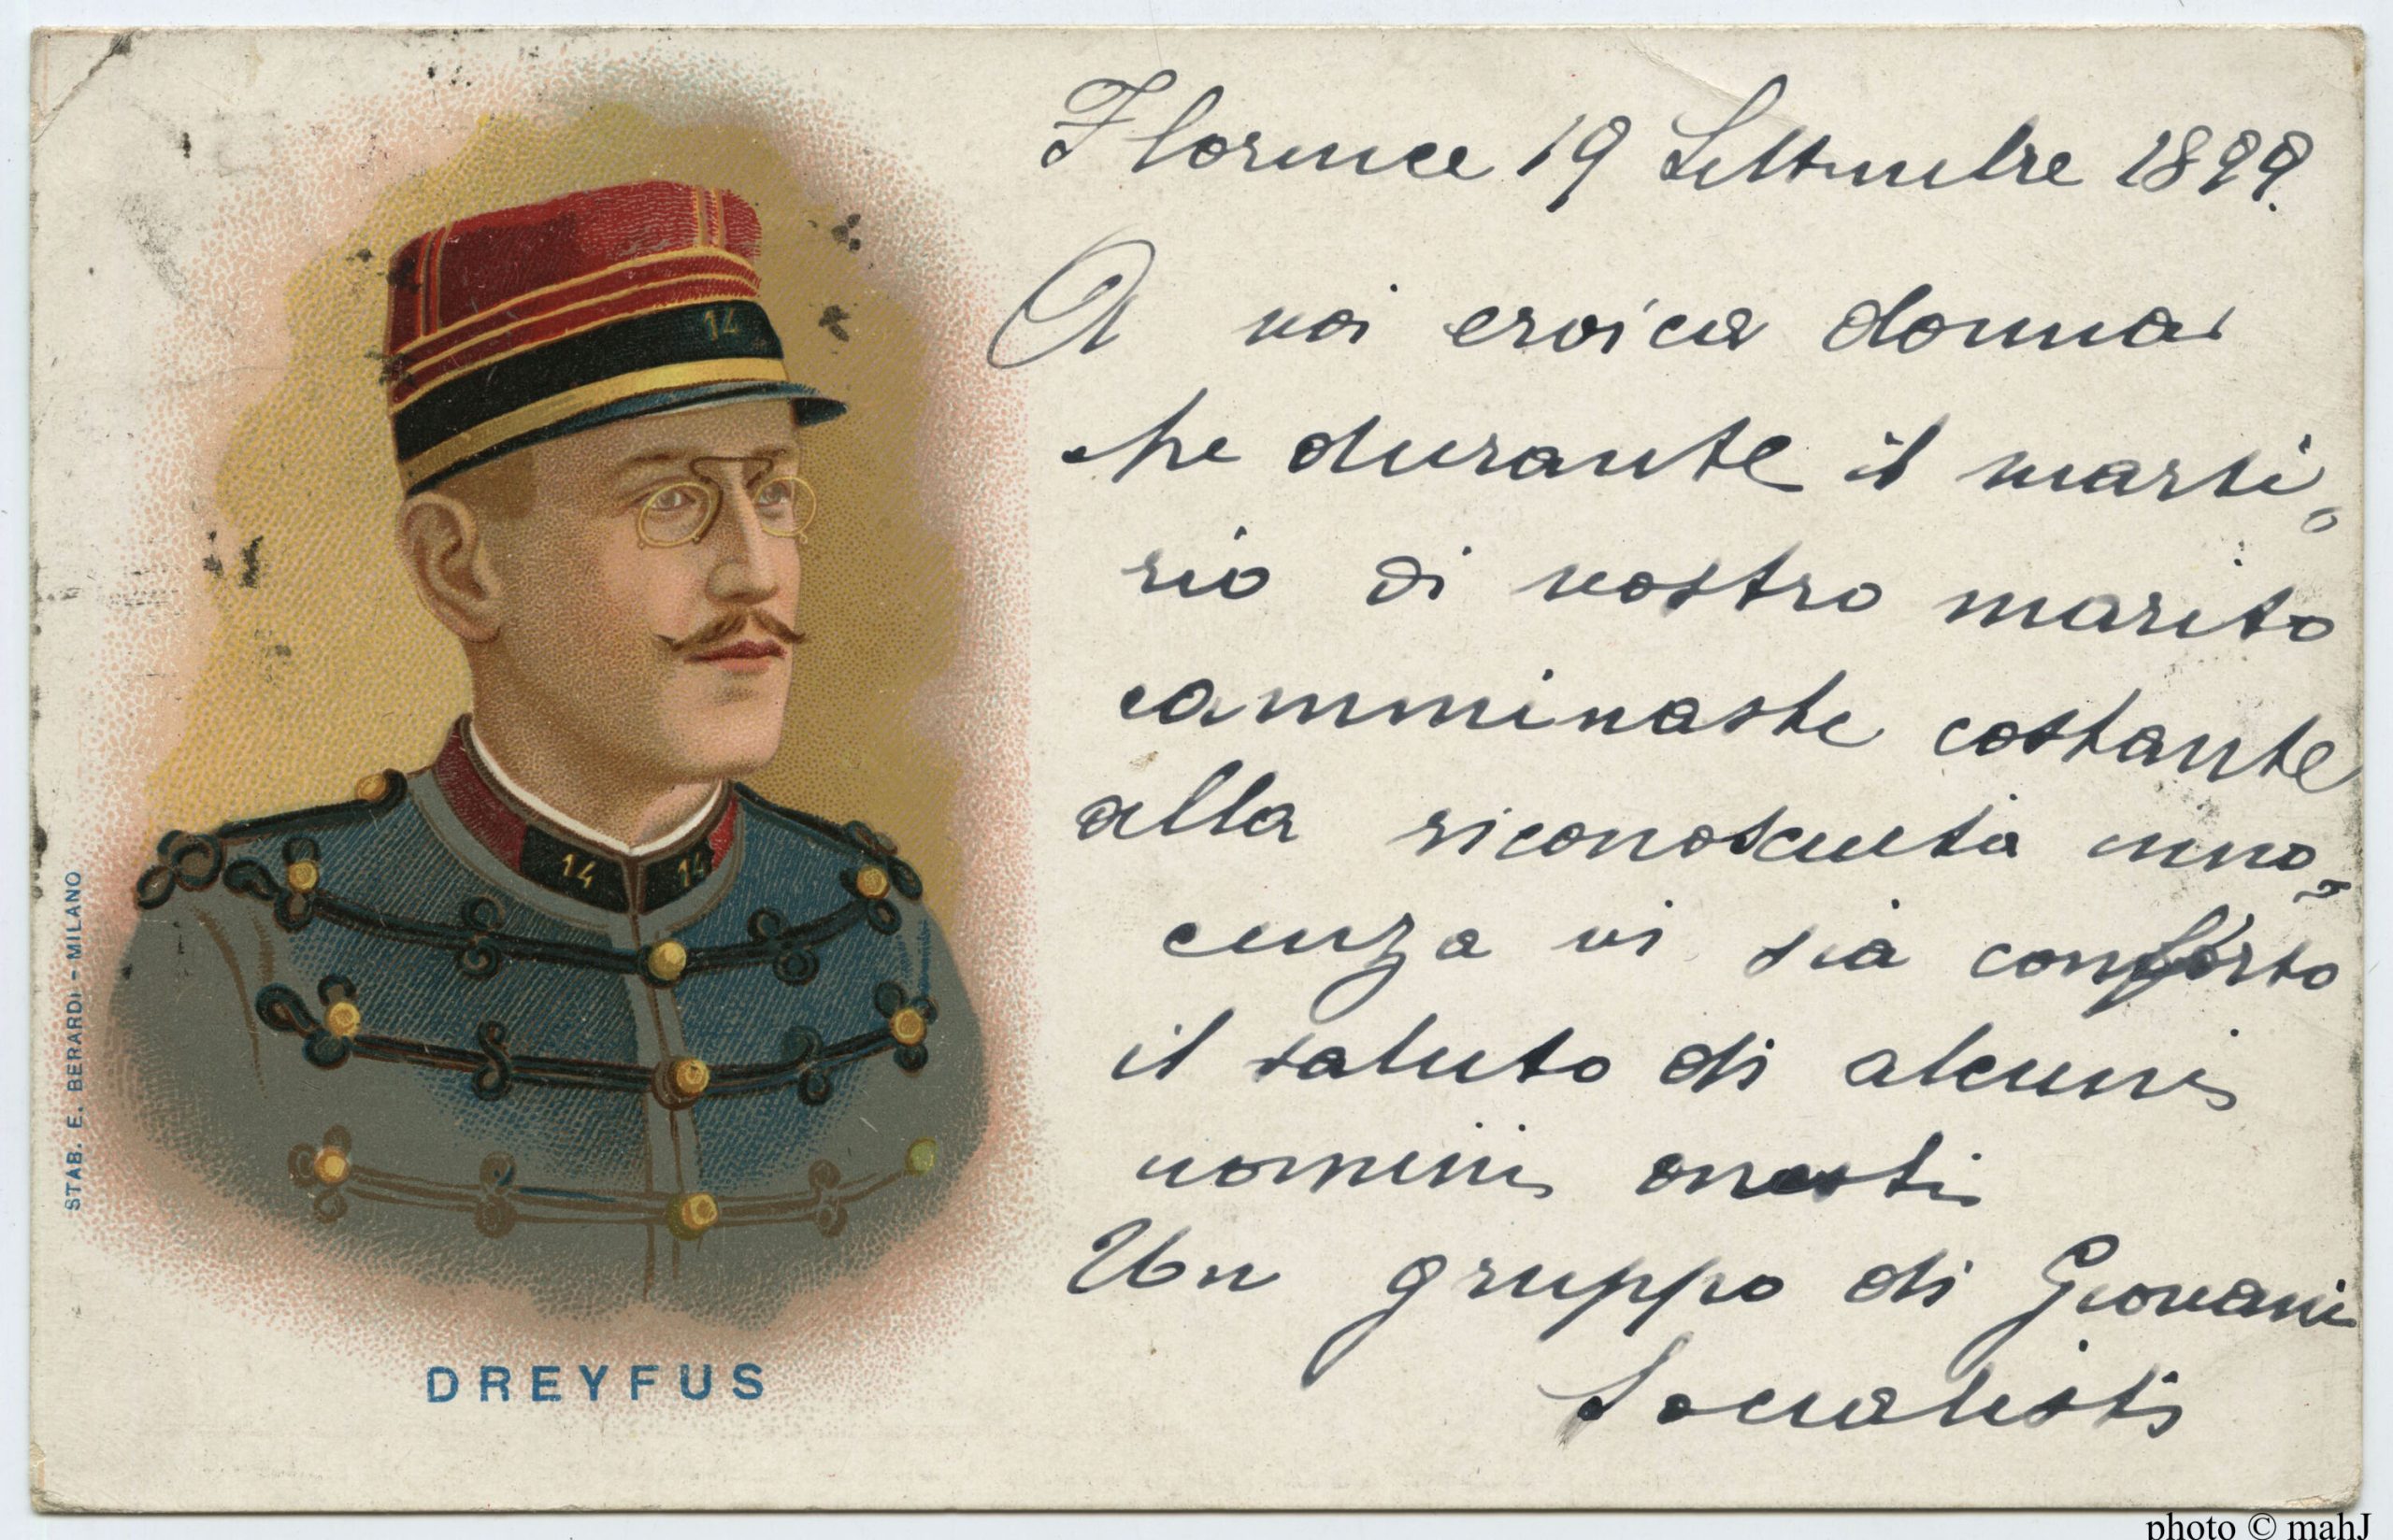 Florence 19 Settembre 1899.
A voi eroica donna
che durante il marti-
rio di vostro marito
camminaste costante
alla riconosciuta inno-
cenza vi sia conforto
il saluto di alcuni
uomini onesti
Un gruppo di Giovani
Socialisti
14
14 14
STAB. E. BERARDI - MILANO
DREYFUS
photo © mahJ